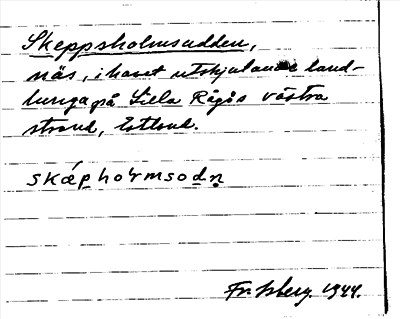 Skeppsholmsudden,
näs, i havet utskjutande land-
tunga på Lilla Rågös västra
strand, Estland.
skǽpho'rmsodn̥
1944.